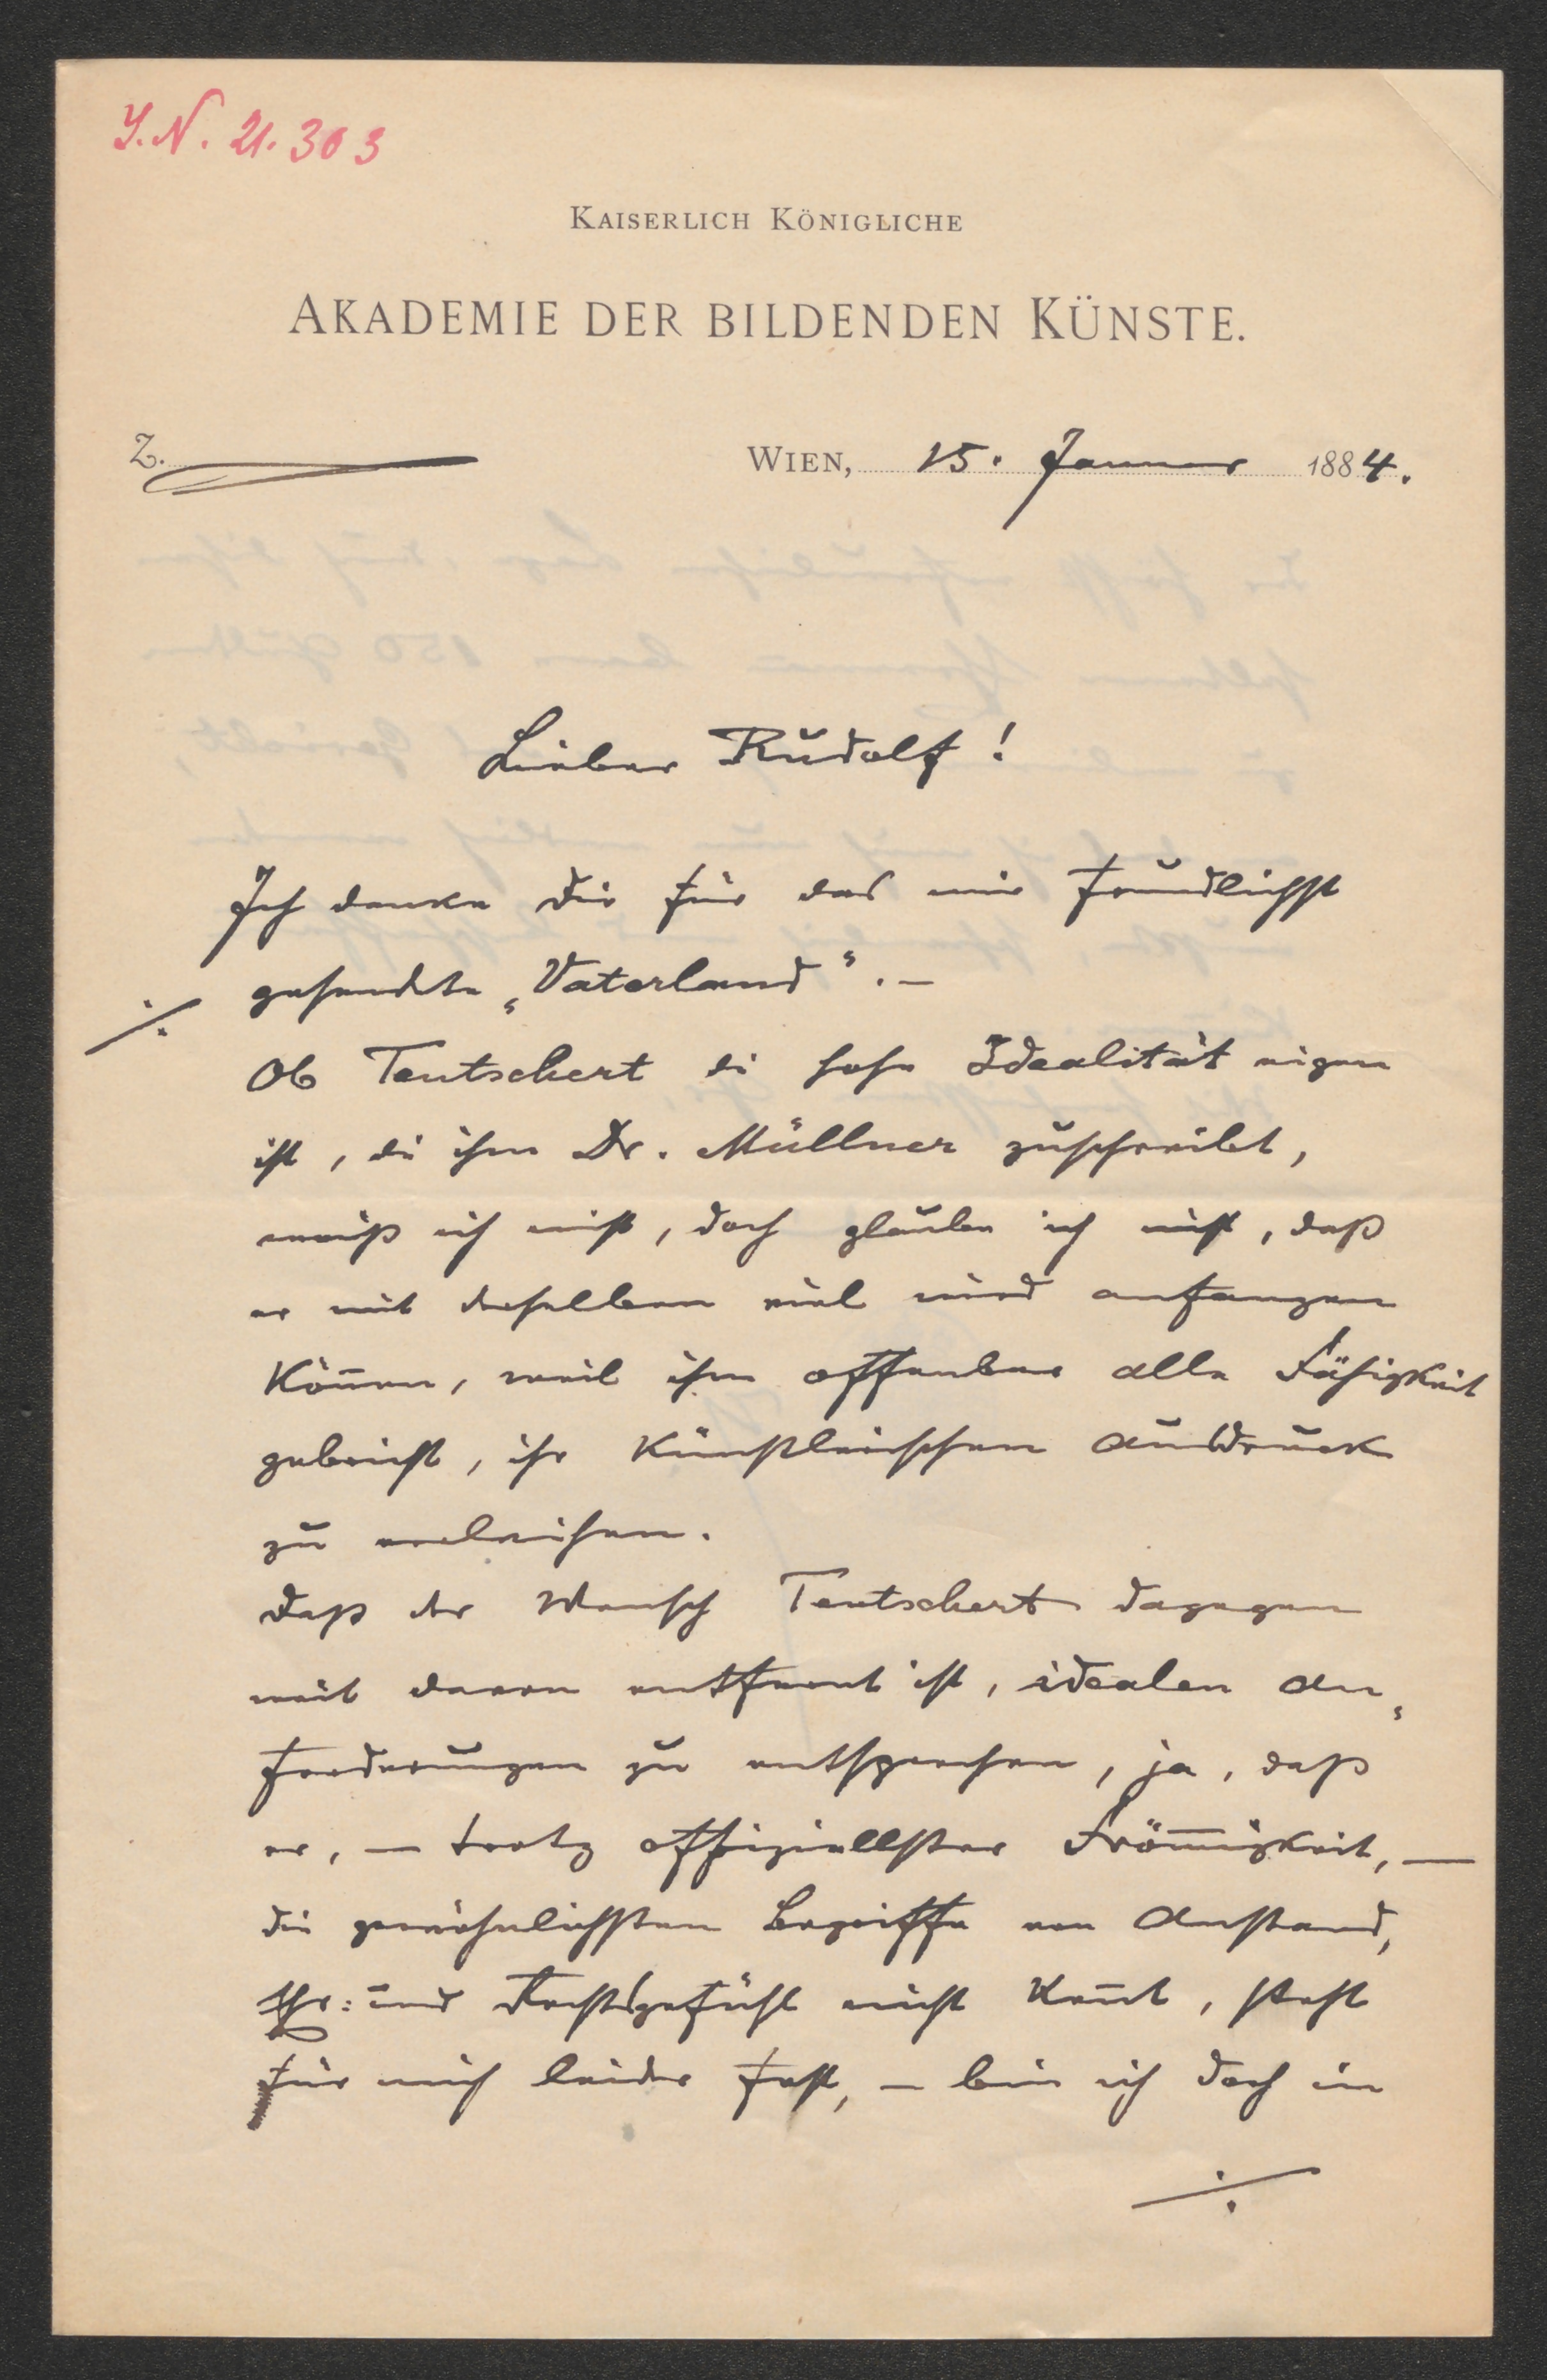 I.N. 21.303
KAISERLICH KÖNIGLICHE
AKADEMIE DER BILDENDEN KÜNSTE.
Z.
WIEN, 15. Januar 1884.
Lieber Rudolf!
Ich danke Dir für das mir freundlichst
gesendete „Vaterland“. –
Ob Teutschert die hohe Idealität eigen
ist, die ihm Dr. Müllner zuschreibt,
weiß ich nicht, doch glaube ich nicht, daß
er mit derselben viel wird anfangen
können, weil ihm offenbar alle Fähigkeit
gebricht, ihr künstlerischen Ausdruck
zu verleihen.
Daß der Mensch Teutschert dagegen
weit davon entfernt ist, idealen An„
forderungen zu entsprechen, ja, daß
er, – trotz offiziellster Frömmigkeit, –
die gewöhnlichsten Begriffe von Anstand,
Ehr: und Rechtsgefühl nicht kennt, steht
für mich leider fest, – bin ich doch in
./.